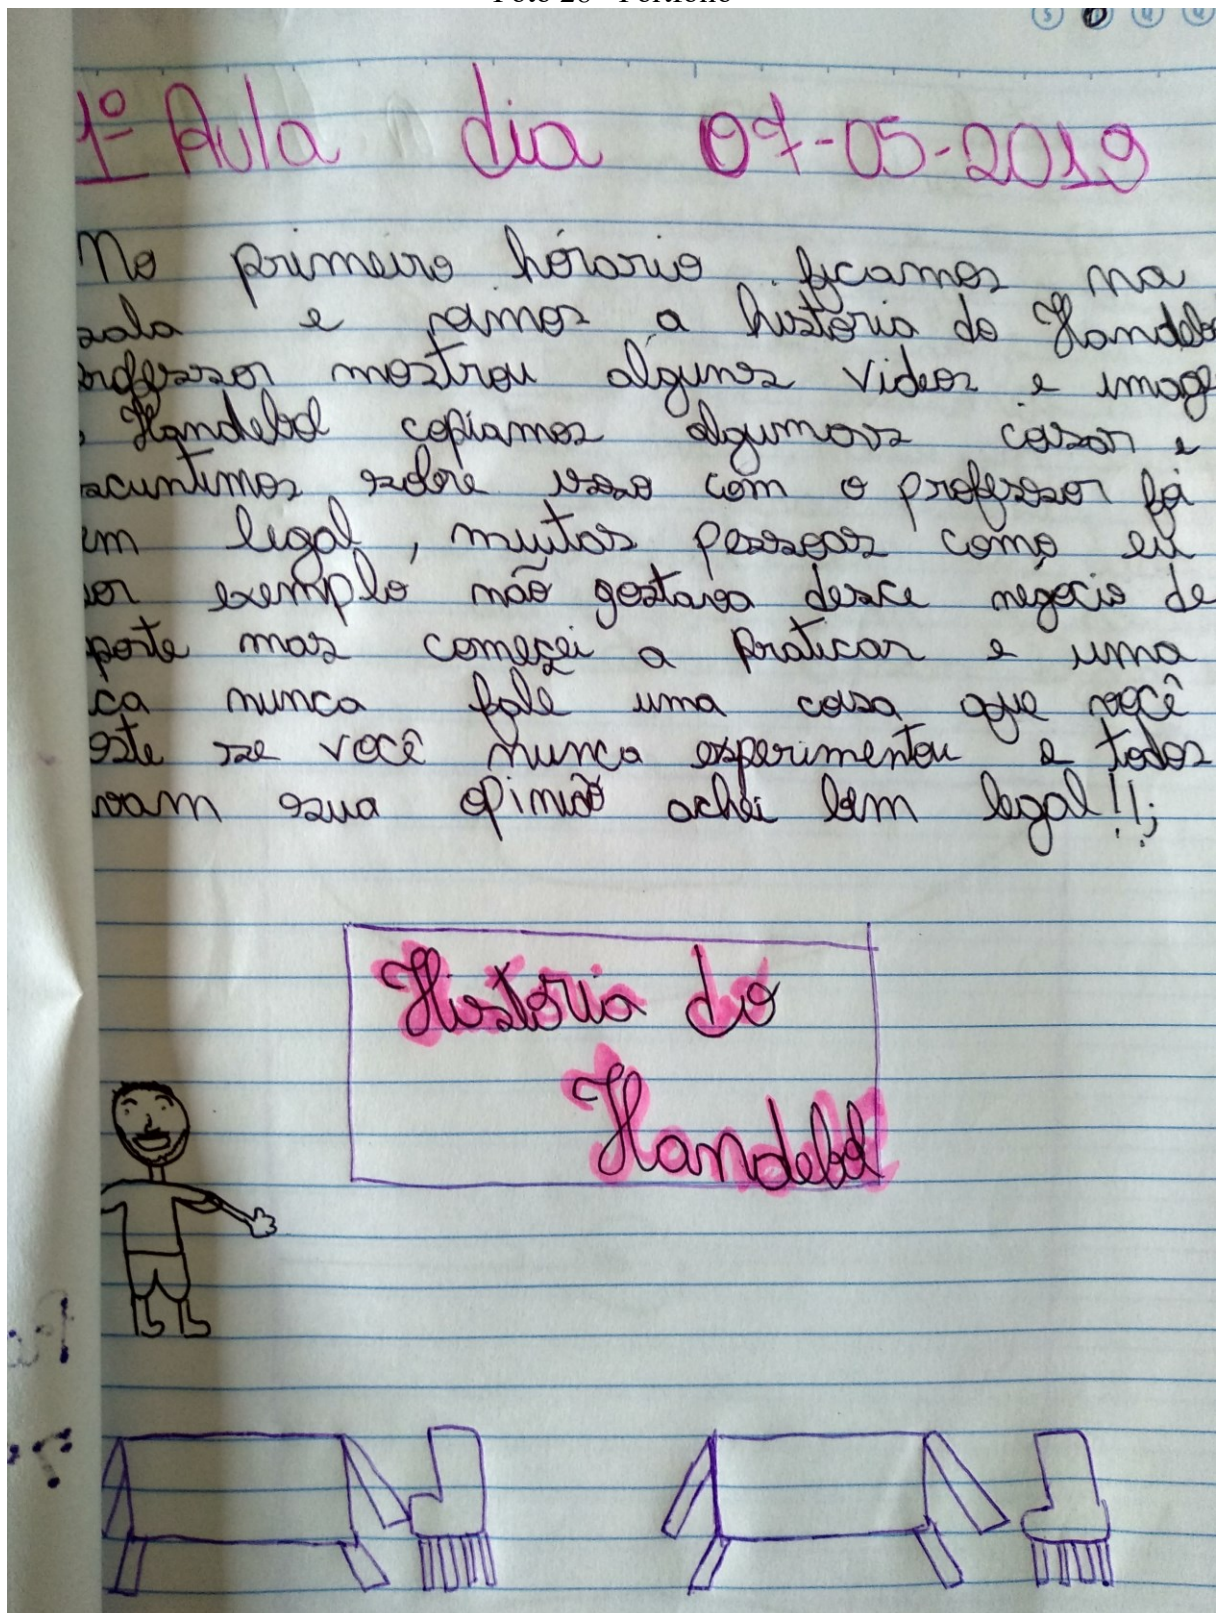 1º Aula dia 07-05-2019
No primeiro hórario ficamos na
sala e vimos a história do Handebo
rofessor mostrou alguns videos e image
Handebol copiamos algumas coisas e
scuntimos sobre isso com o professor foi
em legal, muitas pessoas como eu
or exemplo não gostava desse négocio de
porte mas começei a praticar e uma
ca nunca fale uma coisa que você
oste se você nunca experimentou e todos
ram sua opinião achei bem legal!!;
História do
Handebol